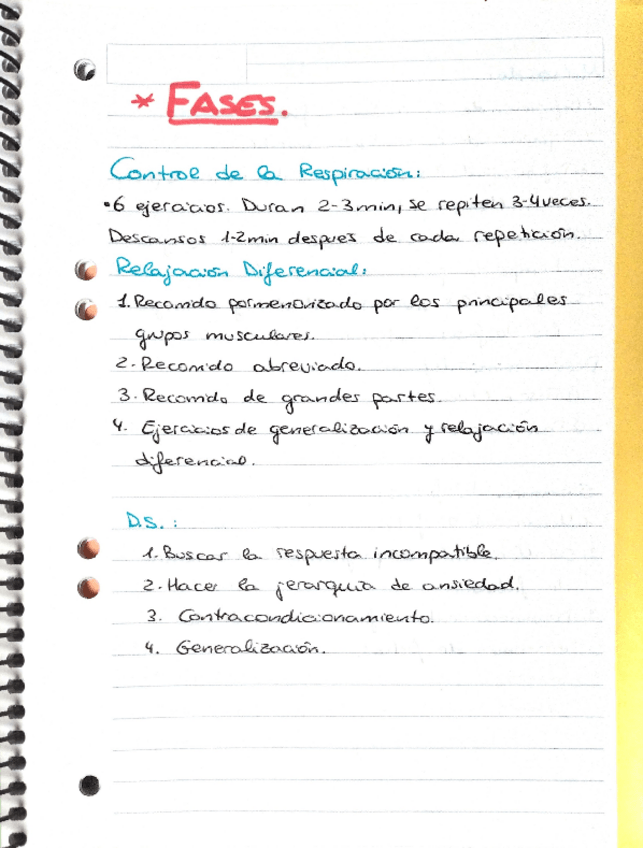 * FASES.
Control de la Respiración:
•6 ejercicios. Duran 2-3min, se repiten 3-4veces.
Descansos 1-2min despues de cada repetición.
Relajación Diferencial:
1. Recorrido pormenorizado por los principales
grupos musculares.
2. Recorrido abreviado.
3. Recorrido de grandes partes.
4. Ejercicios de generalización y relajación
diferencial.
D.S. :
1. Buscar la respuesta incompatible.
2. Hacer la jerarquia de ansiedad.
3. Contracondicionamiento.
4. Generalización.